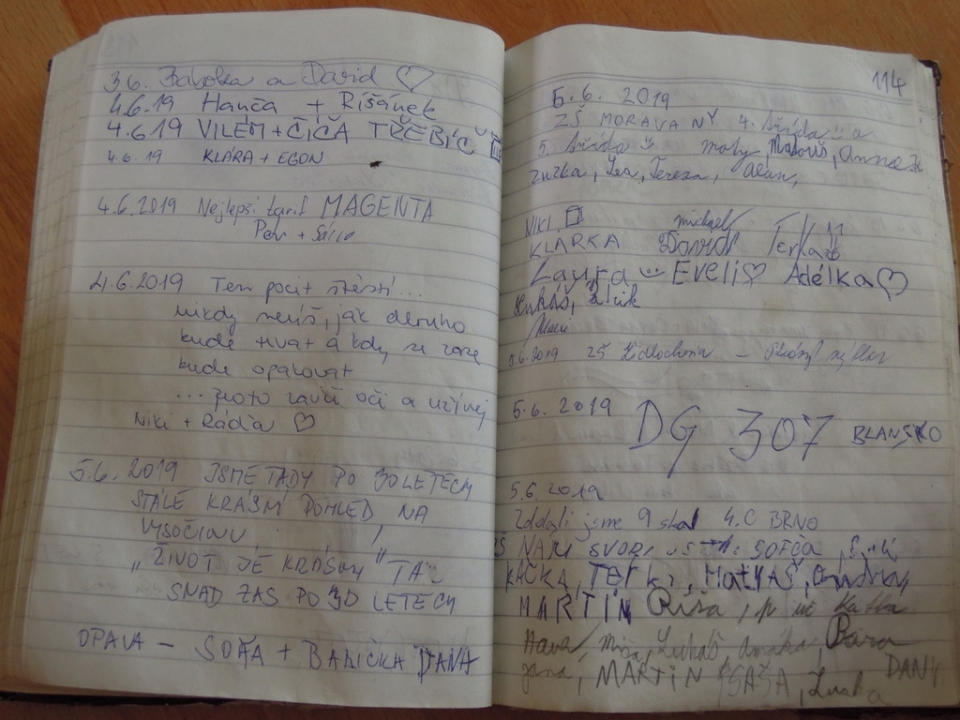 3.6. a David ♡
4.6.19 Hanča + Ríšánek
4.6.19 VILÉM + ČIČA TŘEBÍČ
4.6.19 KLÁRA + EGON
4.6.2019 Nejlepší tarif MAGENTA
Petr +
4.6.2019 Ten pocit štěstí...
nikdy nevíš, jak dlouho
bude trvat a kdy se zase
bude opakovat
... proto zavři oči a užívej
Niki + Ráďa ♡
5.6.2019 JSME TADY PO 30 LETECH
STÁLE KRÁSNÝ POHLED NA
VYSOČINU,
"ŽIVOT JE KRÁSNÝ" TA..
SNAD ZAS PO 30 LETECH
OPAVA - SOŇA + BABIČKA DANA
114
5.6. 2019
ZŠ MORAVANY 4. třída a
5. třída Matouš, Anna
Zuzka, Lea, Tereza, Alan,
NIKI
KLARKA michael David Terka
Laura Evelis♡ Adélka♡
Lukáš,
5.6.2019 ZŠ Židlochovice -
5.6.2019 DG 307 BLANSKO
5.6.2019
Zdolali jsme 9 skal 4.C BRNO
NAŠI SOFČA,
KAČKA, TERKA, MATYÁŠ, Ondra
MARTIN Ríša, Katka
Hana, Míša, Lukáš, Bára
Jana, MARTIN SAŠA, Lenka DANY